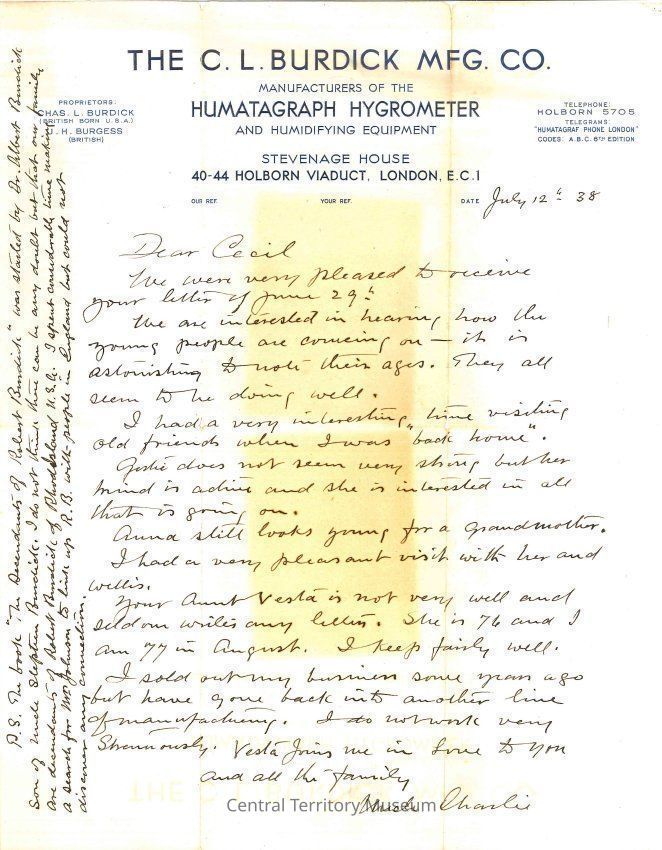 THE C. L. BURDICK MFG. CO.
MANUFACTURERS OF THE
HUMATAGRAPH HYGROMETER
AND HUMIDIFYING EQUIPMENT
PROPRIETORS:
CHAS. L. BURDICK
(BRITISH BORN U.S.A.)
H. BURGESS
(BRITISH)
TELEPHONE:
HOLBORN 5705
TELEGRAMS:
"HUMATAGRAF PHONE LONDON"
CODES: A.B.C. 6TH EDITION
STEVENAGE HOUSE
40-44 HOLBORN VIADUCT, LONDON, E.C.1
OUR REF. YOUR REF. DATE July 12th 38
Dear Cecil
We were very pleased to receive
your letter of June 29th
We are interested in hearing how the
young people are comeing on — it is
astonishing to note their ages. They all
seem to be doing well.
I had a very interesting time visiting
old friends when I was "back home".
does not seem very strong but her
mind is active and she is interested in all
that is going on.
Anna still looks young for a grandmother.
I had a very pleasant visit with her and
Willis.
Your Aunt Vesta is not very well and
seldom writes any letters. She is 76 and I
am 77 in August. I keep fairly well.
I sold out my business some years ago
but have gone back into another line
of manufacturing. I do not work very
Strenuously. Vesta Joins me in Love to You
and all the family
Uncle Charlie
P.S. The book "The Decendants of Robert Burdick" was started by Dr. Albert Burdick
Son of Uncle Stephen Burdick. I do not think there can be any doubt but that our family
are decendants of Robert Burdick of Rhode Island U.S.A. I spent considerable time making
a search for Mrs Johnson to link up R.B. with people in England but could not
discover any connection.
Central Territory Museum